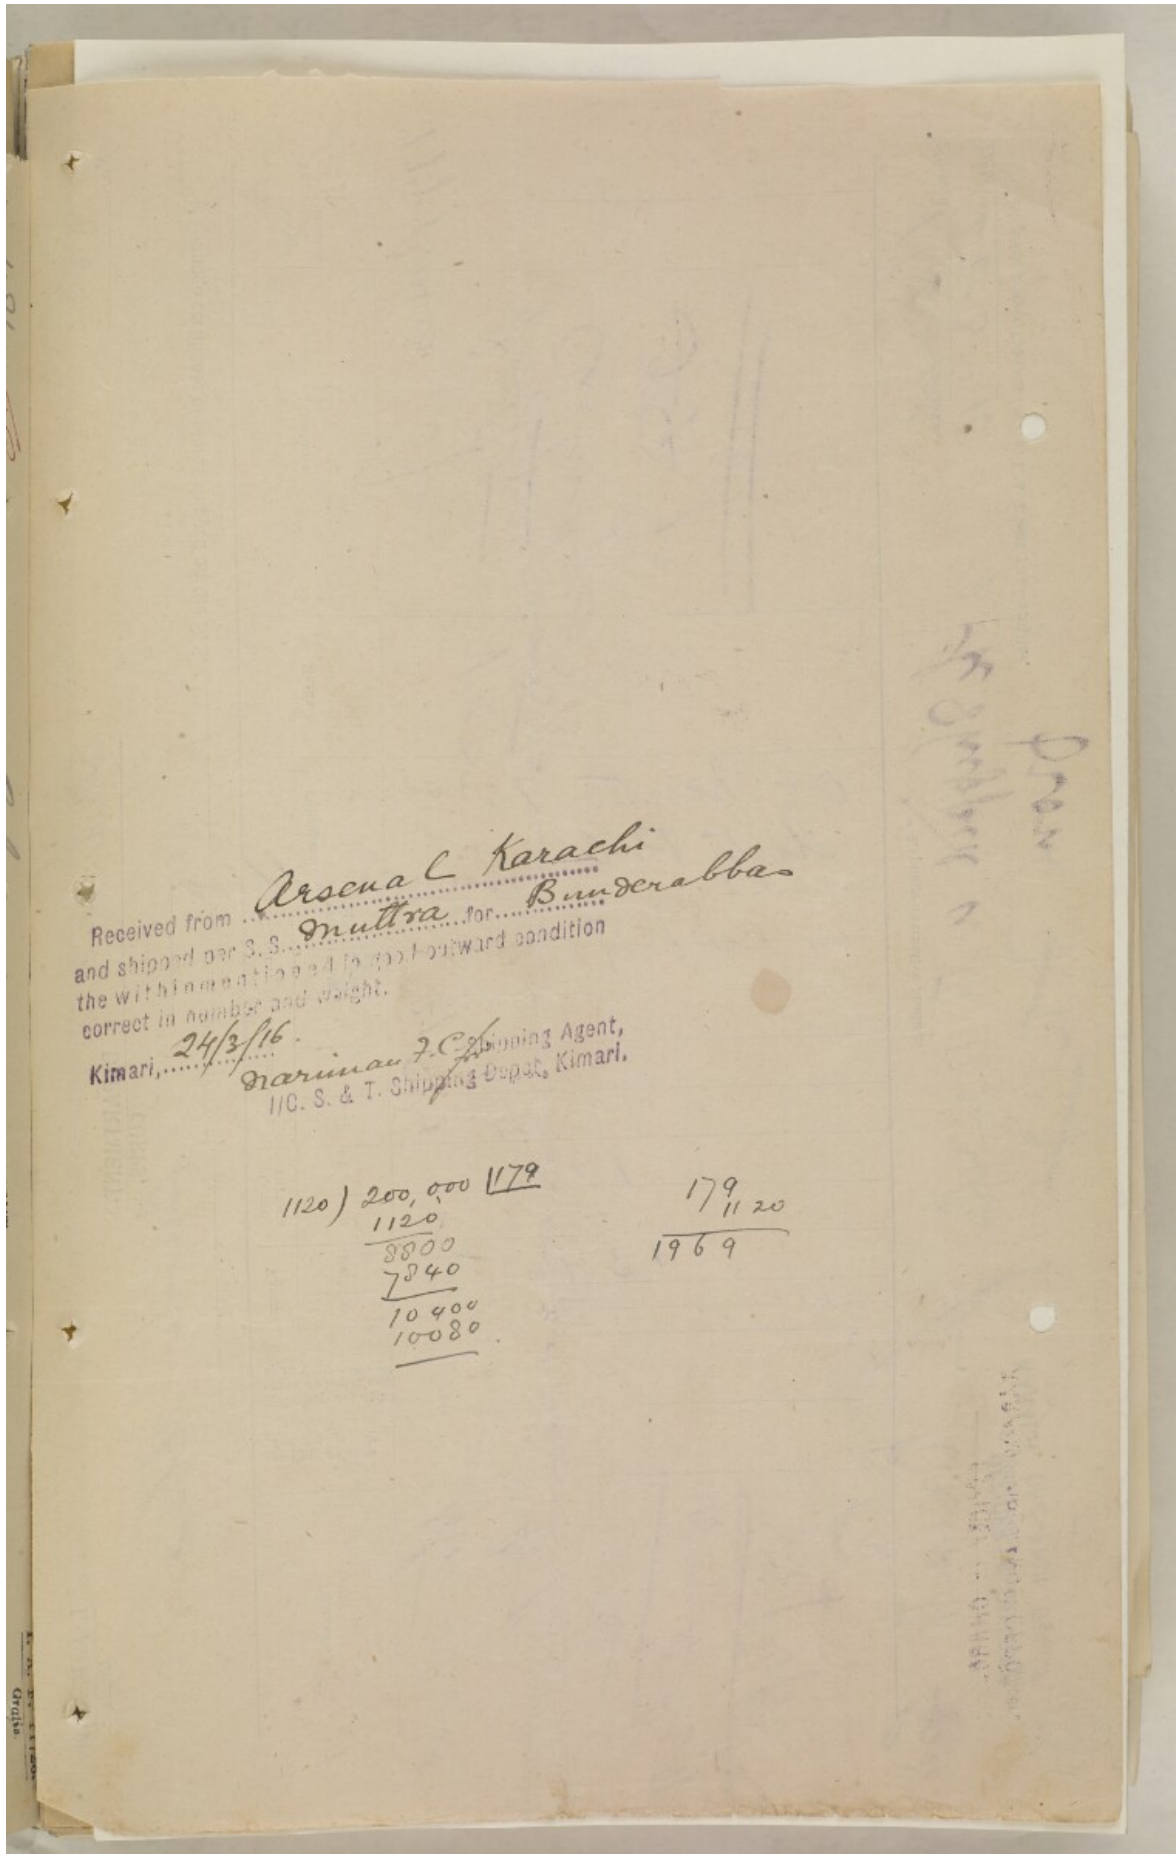 Received from Arsenal Karachi
and shipped per S. S. Muttra for Bunderabbas
the withinmentioned in good outward condition
correct in number and weight.
Kimari, 24/3/16.
Nariman F. C. Shipping Agent,
I/C. S. & T. Shipping Depot, Kimari.
1120) 200,000 179
1120
8800
7840
10400
10080
179
1120
1969